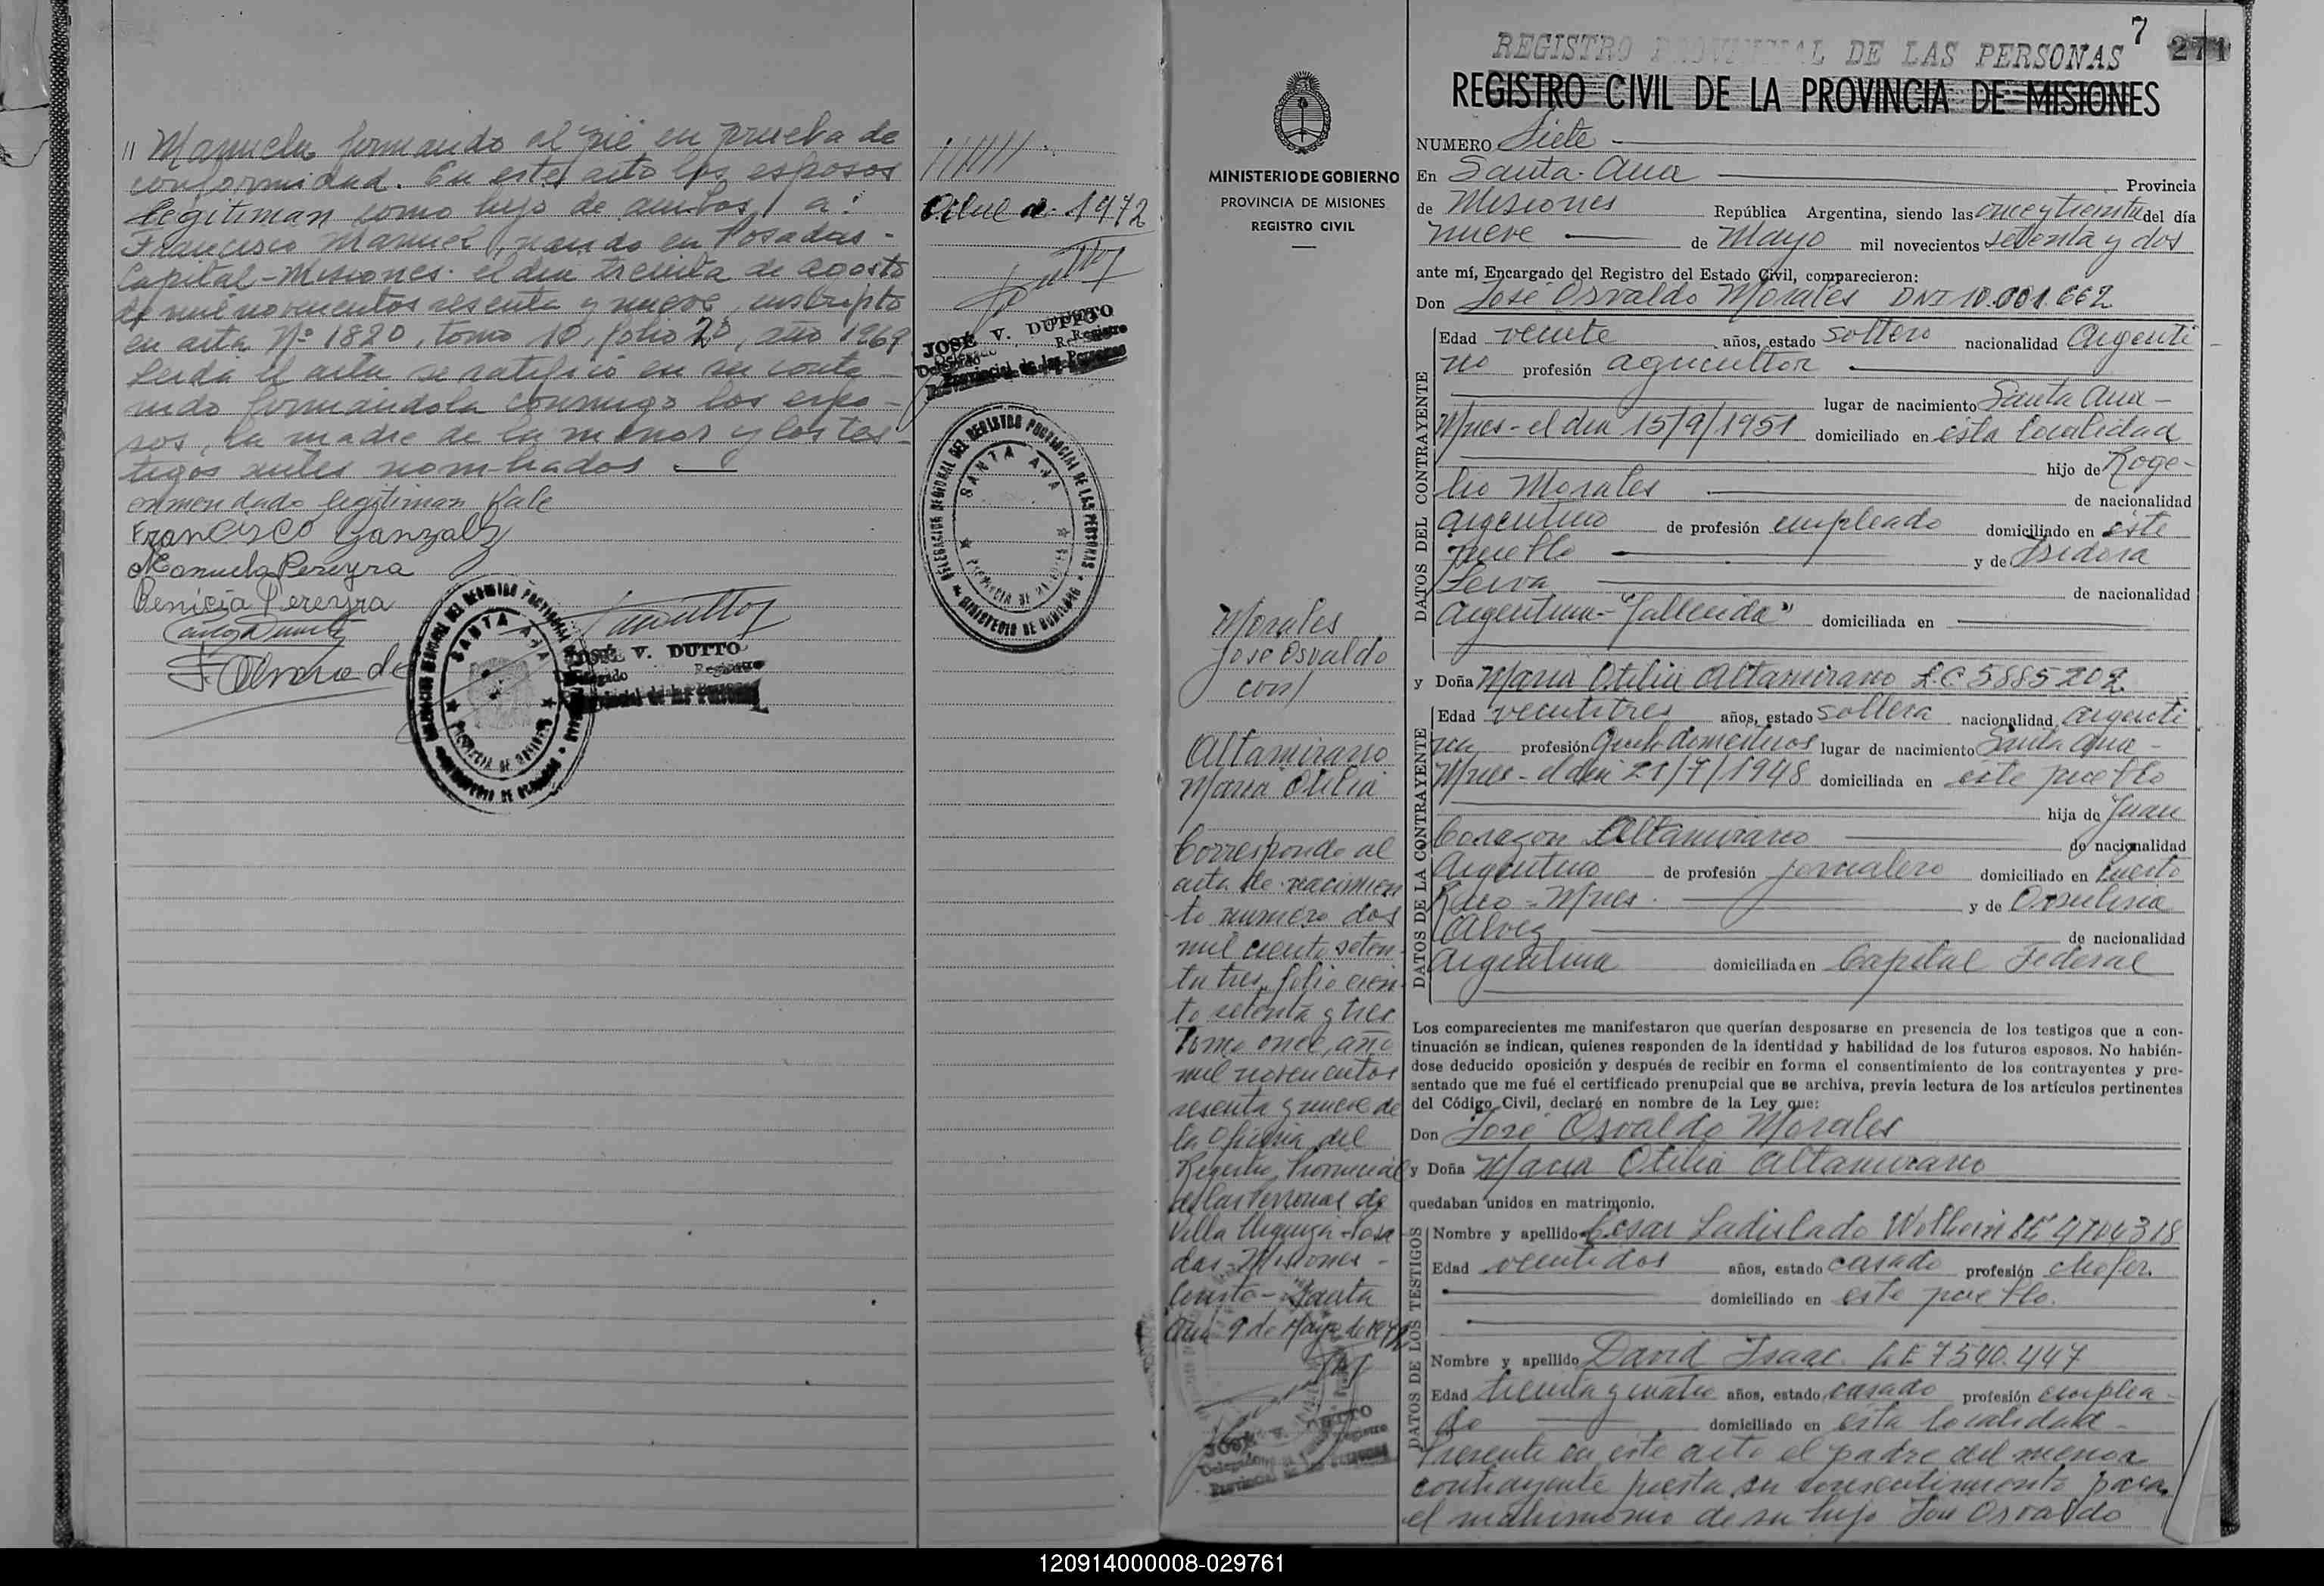 // Manuela firmando al pié en prueba de
conformidad. En este acto los esposos
legitiman como hijo de ambos, a:
Francisco Manuel, nacido en Posadas-
Capital-Misiones. el día treinta de agosto
de mil novecientos sesenta y nueve, inscripto
en acta Nº 1820, tomo 10, folio 20, año 1969
Leida el acta se ratificó en su conte-
nido firmándola conmigo los espo-
sos, la madre de la menor y los tes-
tigos antes nombrados
enmendado legitiman Vale
Francisco Gonzalez
Manuela Pereyra
Benicia Pereyra
JOSÉ V. DUTTO
Delegado Registro
Provincial de las Personas
DELEGACION REGIONAL DEL REGISTRO PROVINCIAL DE LAS PERSONAS
SANTA ANA
PROVINCIA DE MISIONES
MINISTERIO DE GOBIERNO
//////
1972
JOSÉ V. DUTTO
Delegado Registro
Provincial de las Personas
DELEGACION REGIONAL DEL REGISTRO PROVINCIAL DE LAS PERSONAS
SANTA ANA
PROVINCIA DE MISIONES
MINISTERIO DE GOBIERNO
MINISTERIO DE GOBIERNO
PROVINCIA DE MISIONES
REGISTRO CIVIL
Morales
José Osvaldo
con/
Altamirano
María Otilia
Corresponde al
acta de nacimien
to numero dos
mil ciento seten-
ta tres, folio cien
to setenta y tres
Tomo once, año
mil novecientos
sesenta y nueve de
la Oficina del
Registro Provincial
de las Personas de
Villa Urquiza-Posa
das-Misiones-
Conste-Santa
Ana 9 de Mayo de 1972
JOSÉ V. DUTTO
Delegado Registro
Provincial de las Personas
7
271
REGISTRO PROVINCIAL DE LAS PERSONAS
REGISTRO CIVIL DE LA PROVINCIA DE MISIONES
NUMERO Siete
En Santa-Ana Provincia
de Misiones República Argentina, siendo las once y treinta del día
nueve de Mayo mil novecientos setenta y dos
ante mí, Encargado del Registro del Estado Civil, comparecieron:
Don José Osvaldo Morales DNI 10.001.662
DATOS DEL CONTRAYENTE
Edad veinte años, estado soltero nacionalidad Argenti
no profesión agricultor
lugar de nacimiento Santa Ana-
Mnes- el día 15/9/1951 domiciliado en esta localidad
hijo de Roge-
lio Morales de nacionalidad
argentino de profesión empleado domiciliado en éste
pueblo y de Isidora
Leiva de nacionalidad
argentina-"fallecida" domiciliada en
y Doña María Otilia Altamirano L.C 5885202
DATOS DE LA CONTRAYENTE
Edad veintitres años, estado soltera nacionalidad argenti
na profesión Queh. domesticos lugar de nacimiento Santa Ana-
Mnes- el día 21/7/1948 domiciliada en este pueblo
hija de Juan
Corazon Altamirano de nacionalidad
Argentino de profesión jornalero domiciliado en Puerto
Rico-Mnes. y de Orsulina
Alvez de nacionalidad
argentina domiciliada en Capital Federal
Los comparecientes me manifestaron que querían desposarse en presencia de los testigos que a con-
tinuación se indican, quienes responden de la identidad y habilidad de los futuros esposos. No habién-
dose deducido oposición y después de recibir en forma el consentimiento de los contrayentes y pre-
sentado que me fué el certificado prenupcial que se archiva, previa lectura de los artículos pertinentes
del Código Civil, declaré en nombre de la Ley que:
Don José Osvaldo Morales
y Doña María Otilia Altamirano
quedaban unidos en matrimonio.
DATOS DE LOS TESTIGOS
Nombre y apellido Cesar Ladislado
Edad veintidos años, estado casado profesión chofer.
domiciliado en este pueblo.
Nombre y apellido David Isaac. LE 7540.447
Edad treinta y cuatro años, estado casado profesión emplea-
do domiciliado en esta localidad-
Presente en este acto el padre del menor
contrayente presta su consentimiento para
el matrimonio de su hijo José Osvaldo
120914000008-029761